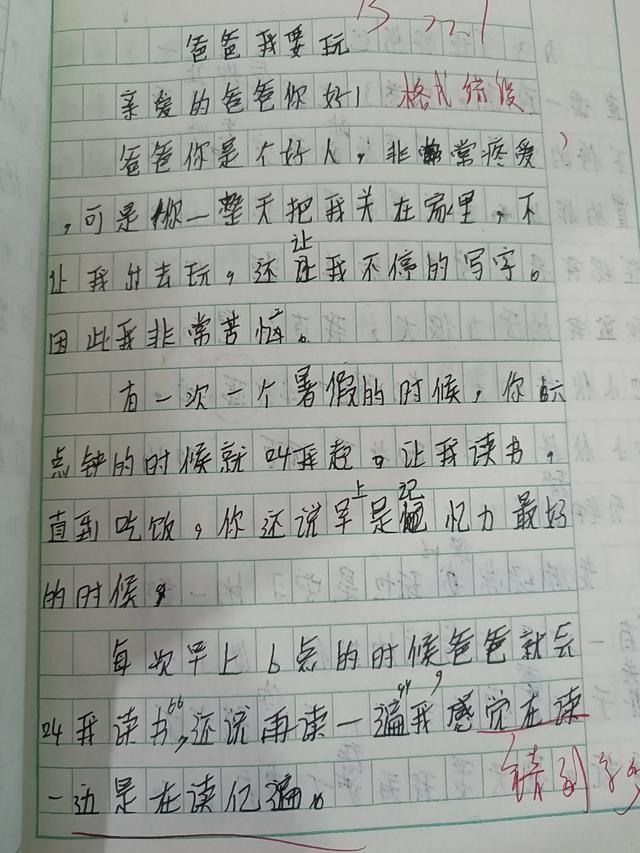 爸爸我要玩
亲爱的爸爸你好！ 格式错误
爸爸你是个好人，非常疼爱
，可是你一整天把我关在家里，不
让我出去玩，还让我不停的写字。
因此我非常苦恼。
有一次一个暑假的时候，你六
点钟的时候就叫我起。让我读书，
直到吃饭，你还说早上是记忆力最好
的时候，
每次早上6点的时候爸爸就会
叫我读书，还说“再读一遍”，我感觉在读
一边是在读亿遍。
错别字多